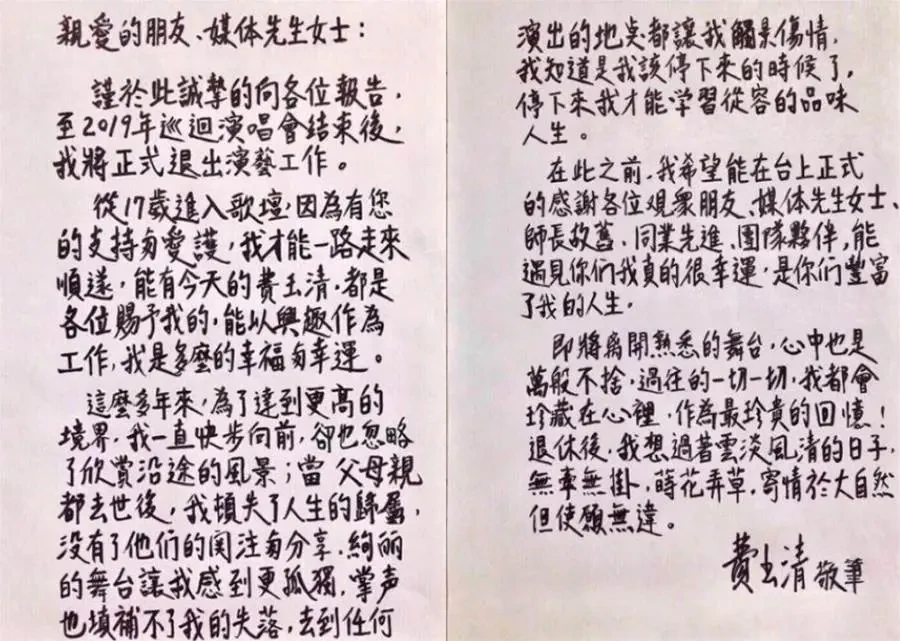 親愛的朋友、媒体先生女士：
謹於此誠摯的向各位報告，
至2019年巡迴演唱會結束後，
我將正式退出演藝工作。
從17歲進入歌壇，因為有您
的支持與愛護，我才能一路走來
順遂，能有今天的費玉清，都是
各位賜予我的，能以興趣作為
工作，我是多麼的幸福與幸運。
這麼多年來，為了達到更高的
境界，我一直快步向前，卻也忽略
了欣賞沿途的風景；當父母親
都去世後，我頓失了人生的歸屬，
没有了他們的関注與分享，絢丽
的舞台讓我感到更孤獨，掌声
也填補不了我的失落，去到任何
演出的地点都讓我觸景傷情，
我知道是我該停下來的時候了，
停下來我才能学習從容的品味
人生。
在此之前，我希望能在台上正式
的感謝各位观眾朋友、媒体先生女士、
師長故舊、同業先進、團隊夥伴，能
遇見你們我真的很幸運，是你們豐富
了我的人生，
即將离開熟悉的舞台，心中也是
萬般不捨，過往的一切一切，我都會
珍藏在心裡，作為最珍貴的回憶！
退休後，我想過著雲淡風清的日子，
無牽無掛，蒔花弄草，寄情於大自然
但使願無違。
費玉清 敬筆